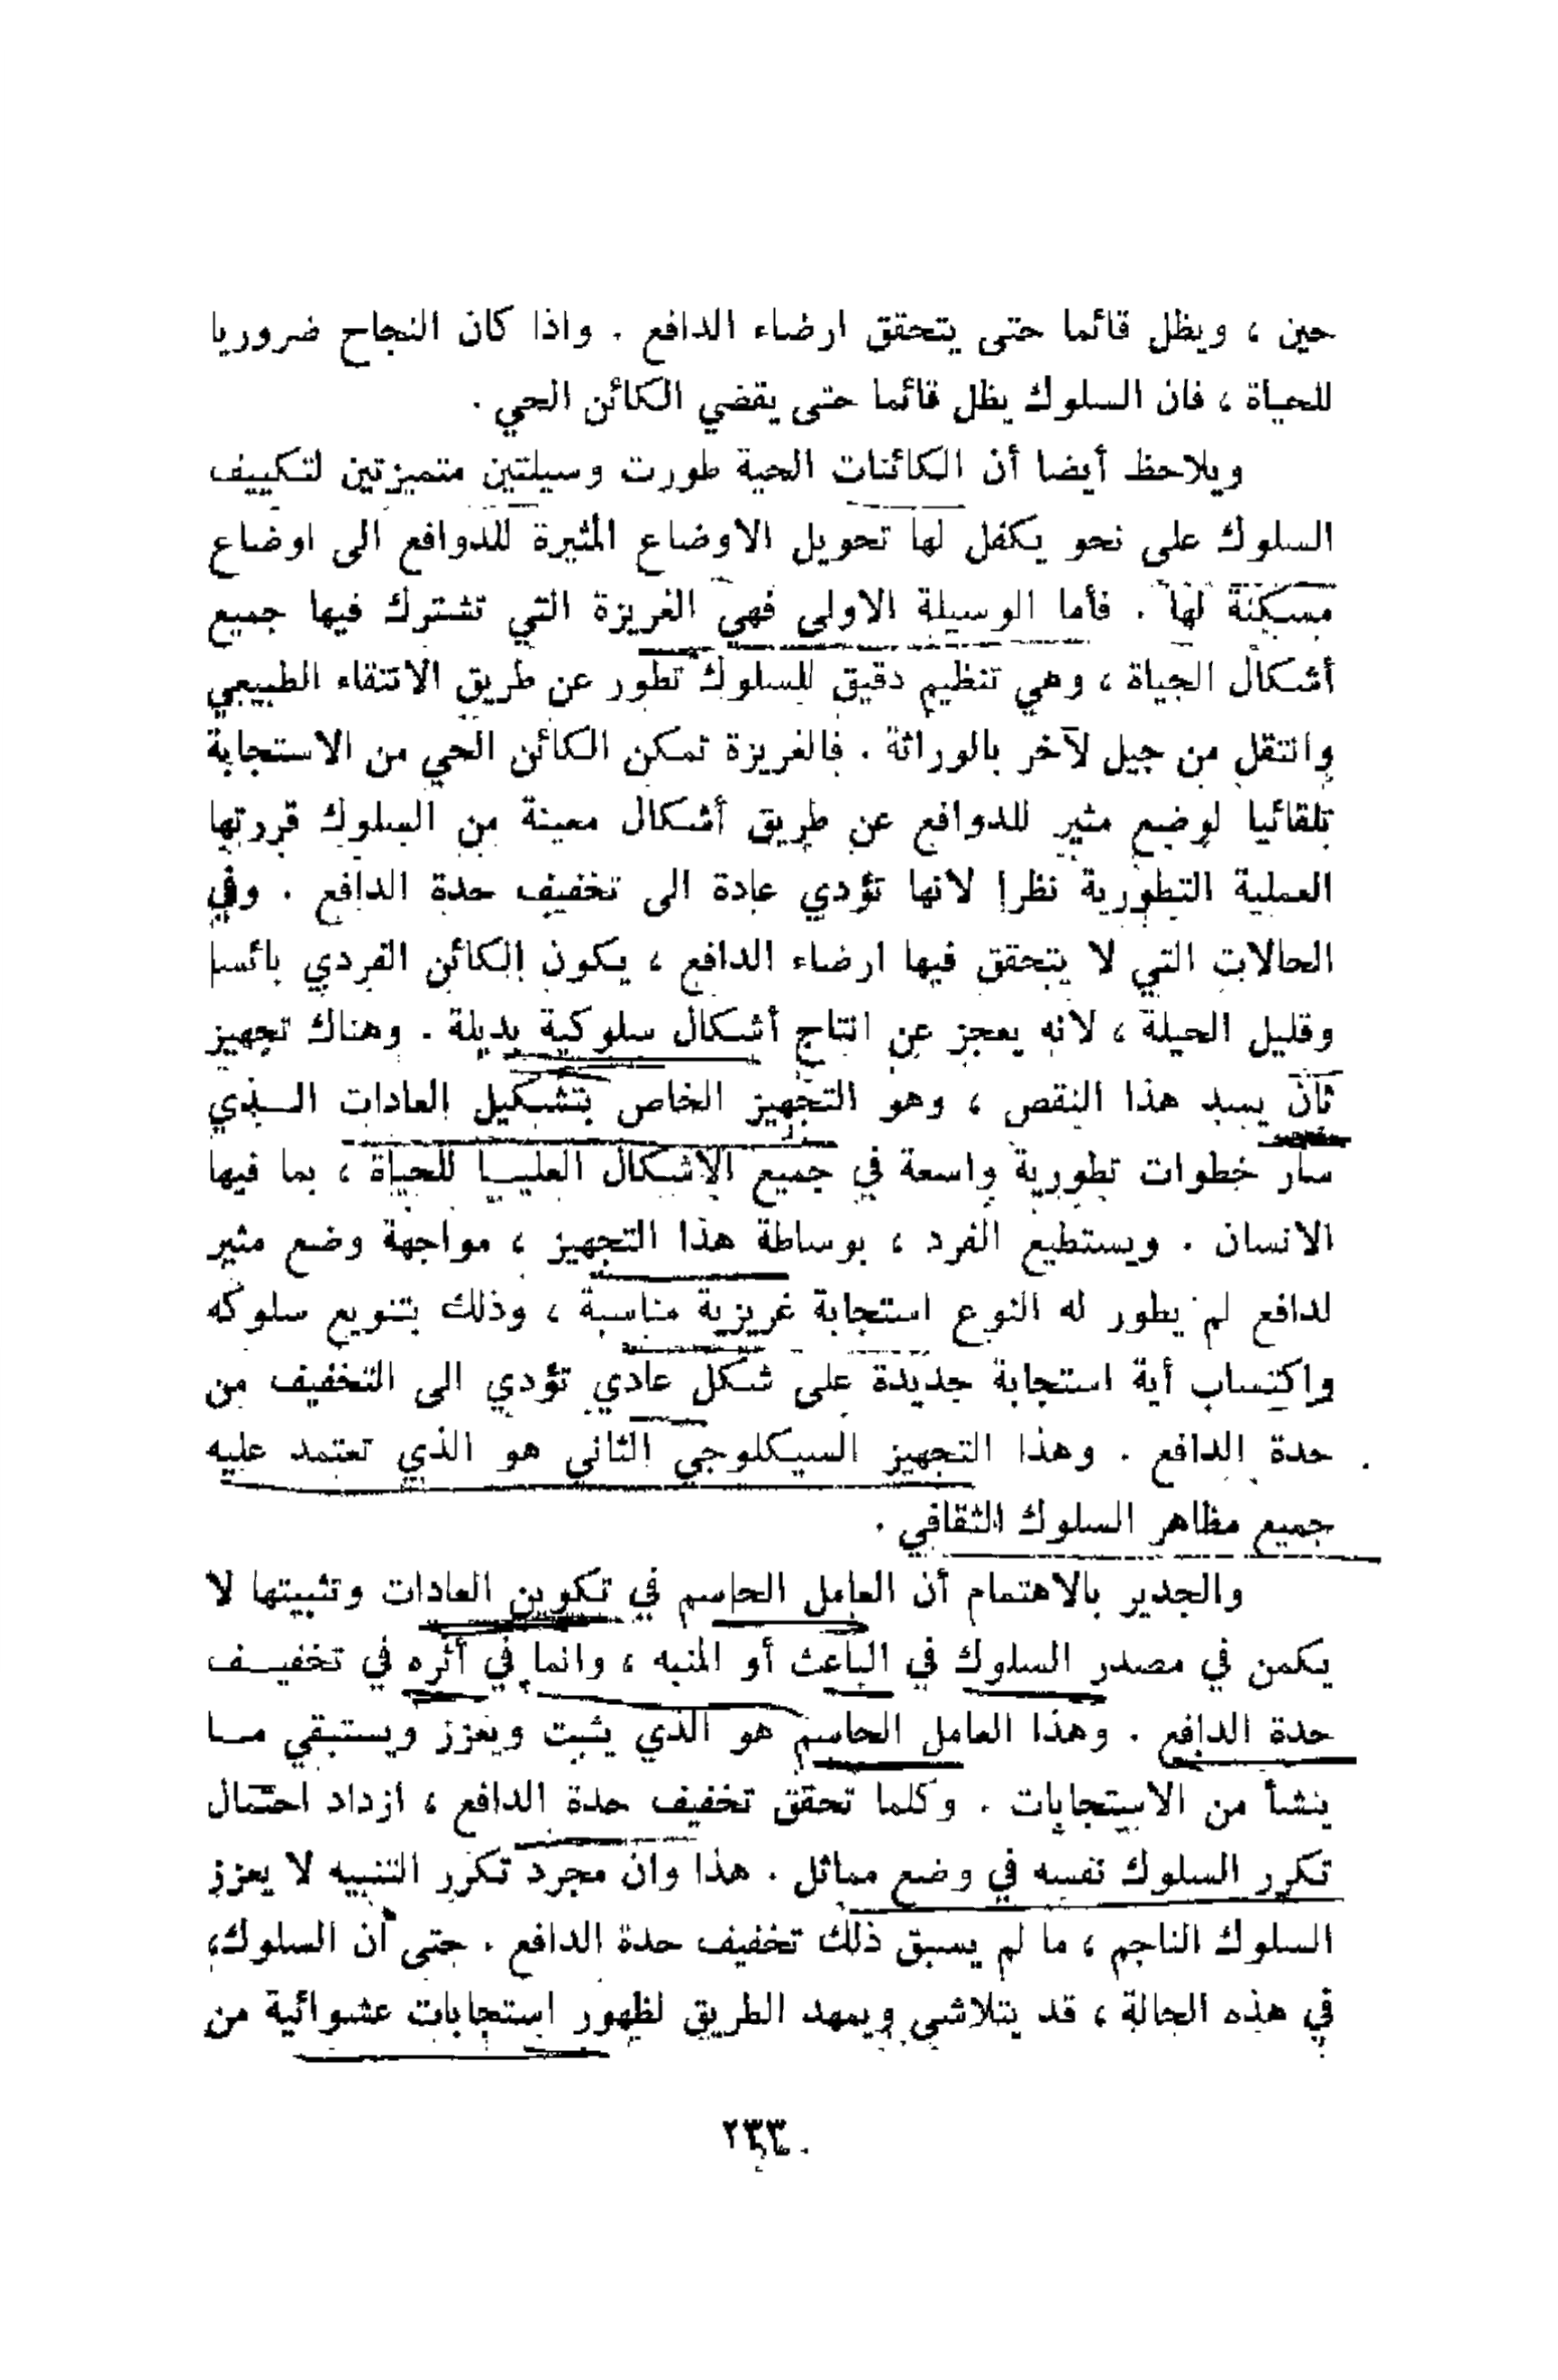 حين ، ويظل قائما حتى يتحقق ارضاء الدافع . واذا كان النجاح ضروريا
للحياة ، فان السلوك يظل قائما حتى يقضي الكائن الحي .
ويلاحظ أيضا أن الكائنات الحية طورت وسيلتين متميزتين لتكييف
السلوك على نحو يكفل لها تحويل الاوضاع المثيرة للدوافع الى اوضاع
مسكنة لها . فأما الوسيلة الاولى فهي الغريزة التي تشترك فيها جميع
أشكال الحياة ، وهي تنظيم دقيق للسلوك تطور عن طريق الانتقاء الطبيعي
وانتقل من جيل لآخر بالوراثة . فالغريزة تمكن الكائن الحي من الاستجابة
تلقائيا لوضع مثير للدوافع عن طريق أشكال معينة من السلوك قررتها
العملية التطورية نظرا لانها تؤدي عادة الى تخفيف حدة الدافع . وفي
الحالات التي لا يتحقق فيها ارضاء الدافع ، يكون الكائن الفردي بائسا
وقليل الحيلة ، لانه يعجز عن انتاج أشكال سلوكية بديلة . وهناك تجهيز
ثان يسد هذا النقص ، وهو التجهيز الخاص بتشكيل العادات الــذي
سار خطوات تطورية واسعة في جميع الاشكال العليــا للحياة ، بما فيها
الانسان . ويستطيع الفرد ، بوساطة هذا التجهيز ، مواجهة وضع مثير
لدافع لم يطور له النوع استجابة غريزية مناسبة ، وذلك بتنويع سلوكه
واكتساب أية استجابة جديدة على شكل عادي تؤدي الى التخفيف من
حدة الدافع . وهذا التجهيز السيكلوجي الثاني هو الذي تعتمد عليه
جميع مظاهر السلوك الثقافي .
والجدير بالاهتمام أن العامل الحاسم في تكوين العادات وتثبيتها لا
يكمن في مصدر السلوك في الباعث أو المنبه ، وانما في أثره في تخفيــف
حدة الدافع . وهذا العامل الحاسم هو الذي يثبت ويعزز ويستبقي مــا
ينشأ من الاستجابات . وكلما تحقق تخفيف حدة الدافع ، ازداد احتمال
تكرر السلوك نفسه في وضع مماثل . هذا وان مجرد تكرر التنبيه لا يعزز
السلوك الناجم ، ما لم يسبق ذلك تخفيف حدة الدافع . حتى أن السلوك،
في هذه الحالة ، قد يتلاشى ويمهد الطريق لظهور استجابات عشوائية من
٢٣٣